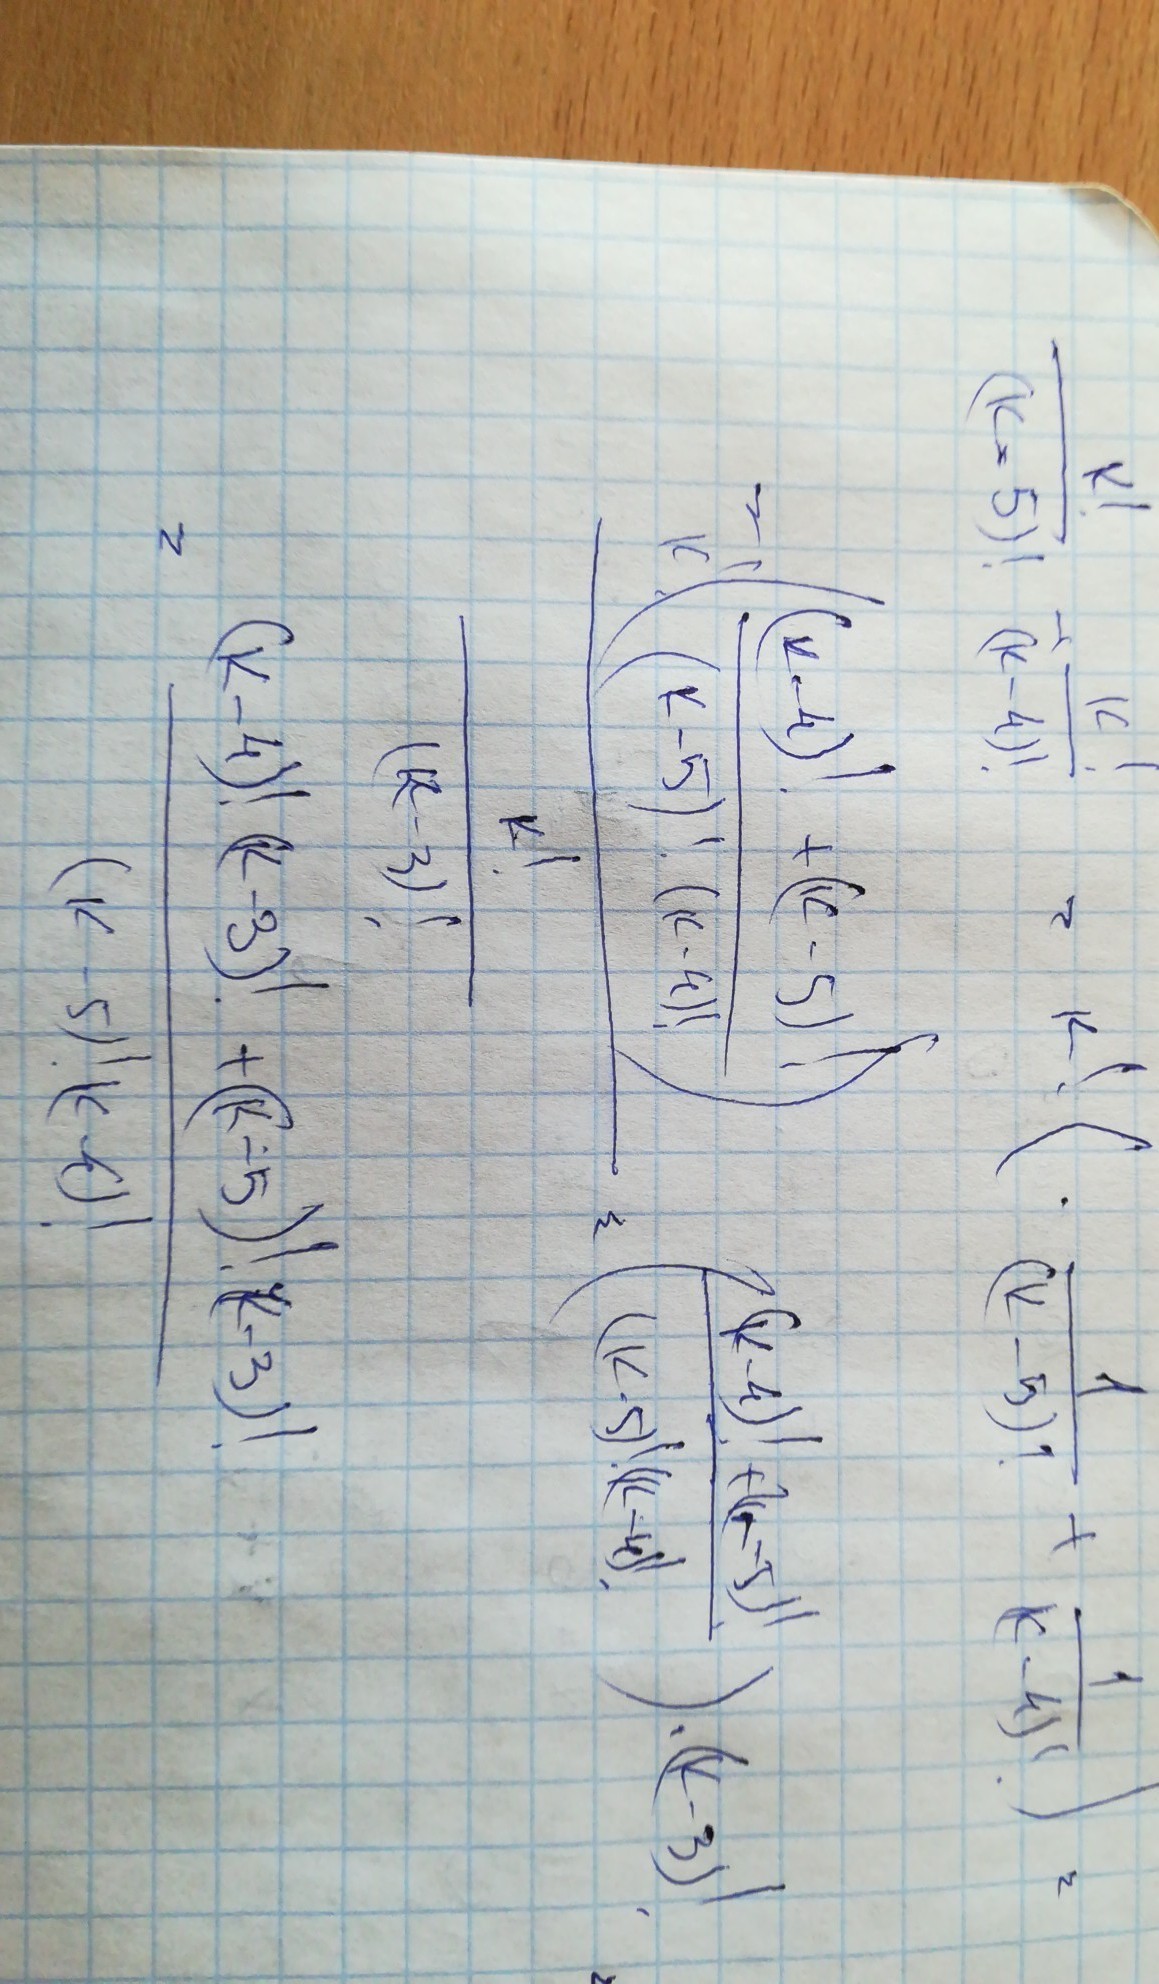 k!/(k-5)! + k!/(k-4)! = k! ( · 1/(k-5)! + 1/(k-4)! ) =
= (k! ( ((k-4)! + (k-5)!) / ((k-5)! (k-4)!) )) / (k!/(k-3)!) = ( ((k-4)! + (k-5)!) / ((k-5)! (k-4)!) ) · (k-3)! =
= ((k-4)! (k-3)! + (k-5)! (k-3)!) / ((k-5)! (k-4)!)